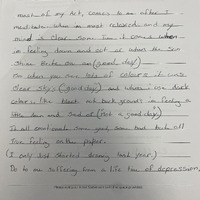 most of my Art, comes to me after I
meditate when am most relaxed and my
mind is clear some time it comes when
im feeling down and out or when the Sun
Shine better on on (good day)
So when you see lots of colours it was
clear sky's (good days) and where I use dark
colours like black out back ground's im feeling a
little down and Sad or ("Not a good days")
It all most made some good, some bad both all
True feeling on the paper.
(I only Just Started drawing last year.)
Do to me suffering from a life time of depression,